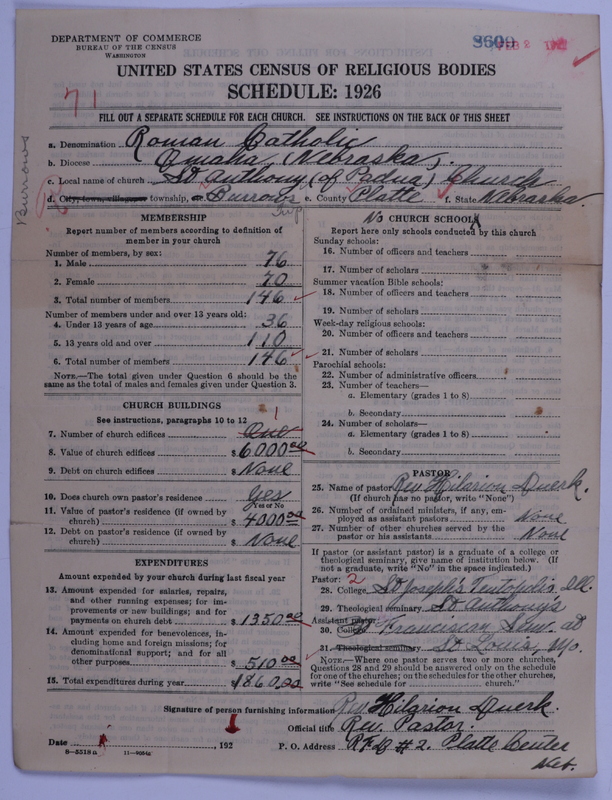 DEPARTMENT OF COMMERCE
BUREAU OF THE CENSUS
WASHINGTON
3600
FEB 2
UNITED STATES CENSUS OF RELIGIOUS BODIES
SCHEDULE: 1926
71
FILL OUT A SEPARATE SCHEDULE FOR EACH CHURCH. SEE INSTRUCTIONS ON THE BACK OF THIS SHEET
a. Denomination Roman Catholic
b. Diocese Omaha, Nebraska.
c. Local name of church St Anthony (of Padua) Church
d. City, town, village or township, or Burrows Twp e. County Platte f. State Nebraska.
Burrows
MEMBERSHIP
Report number of members according to definition of
member in your church
Number of members, by sex:
1. Male 76
2. Female 70
3. Total number of members 146
Number of members under and over 13 years old:
4. Under 13 years of age 36
5. 13 years old and over 110
6. Total number of members 146
NOTE.—The total given under Question 6 should be the
same as the total of males and females given under Question 3.
CHURCH BUILDINGS
See instructions, paragraphs 10 to 12
1
7. Number of church edifices One
8. Value of church edifices $ 6000.00
9. Debt on church edifices $ None
10. Does church own pastor's residence Yes
Yes or No
11. Value of pastor's residence (if owned by
church) $ 4000.00
12. Debt on pastor's residence (if owned by
church) $ None
EXPENDITURES
Amount expended by your church during last fiscal year
13. Amount expended for salaries, repairs,
and other running expenses; for im-
provements or new buildings; and for
payments on church debt $ 1350.00
14. Amount expended for benevolences, in-
cluding home and foreign missions; for
denominational support; and for all
other purposes $ 510.00
15. Total expenditures during year $ 1860.00
No CHURCH SCHOOLS
Report here only schools conducted by this church
Sunday schools:
16. Number of officers and teachers
17. Number of scholars
Summer vacation Bible schools:
18. Number of officers and teachers
19. Number of scholars
Week-day religious schools:
20. Number of officers and teachers
21. Number of scholars
Parochial schools:
22. Number of administrative officers
23. Number of teachers—
a. Elementary (grades 1 to 8)
b. Secondary
24. Number of scholars—
a. Elementary (grades 1 to 8)
b. Secondary
PASTOR
25. Name of pastor Rev. Hilarion Duerk.
(If church has no pastor, write "None")
26. Number of ordained ministers, if any, em-
ployed as assistant pastors None
27. Number of other churches served by the
pastor or his assistants None
If pastor (or assistant pastor) is a graduate of a college or
theological seminary, give name of institution below. (If
not a graduate, write "No" in the space indicated.)
Pastor: 2
28. College St Joseph's Teutopolis Ill.
29. Theological seminary St Anthony's
Assistant pastor:
30. College Franciscan Sem. at
31. Theological seminary St Louis, Mo.
NOTE.—Where one pastor serves two or more churches,
Questions 28 and 29 should be answered only on the schedule
for one of the churches; on the schedules for the other churches,
write "See schedule for church."
Signature of person furnishing information Rev. Hilarion Duerk.
Official title Rev. Pastor.
Date , 192
P. O. Address R.F.D. #2. Platte Center
Neb.
8—5518 a 11—9054a